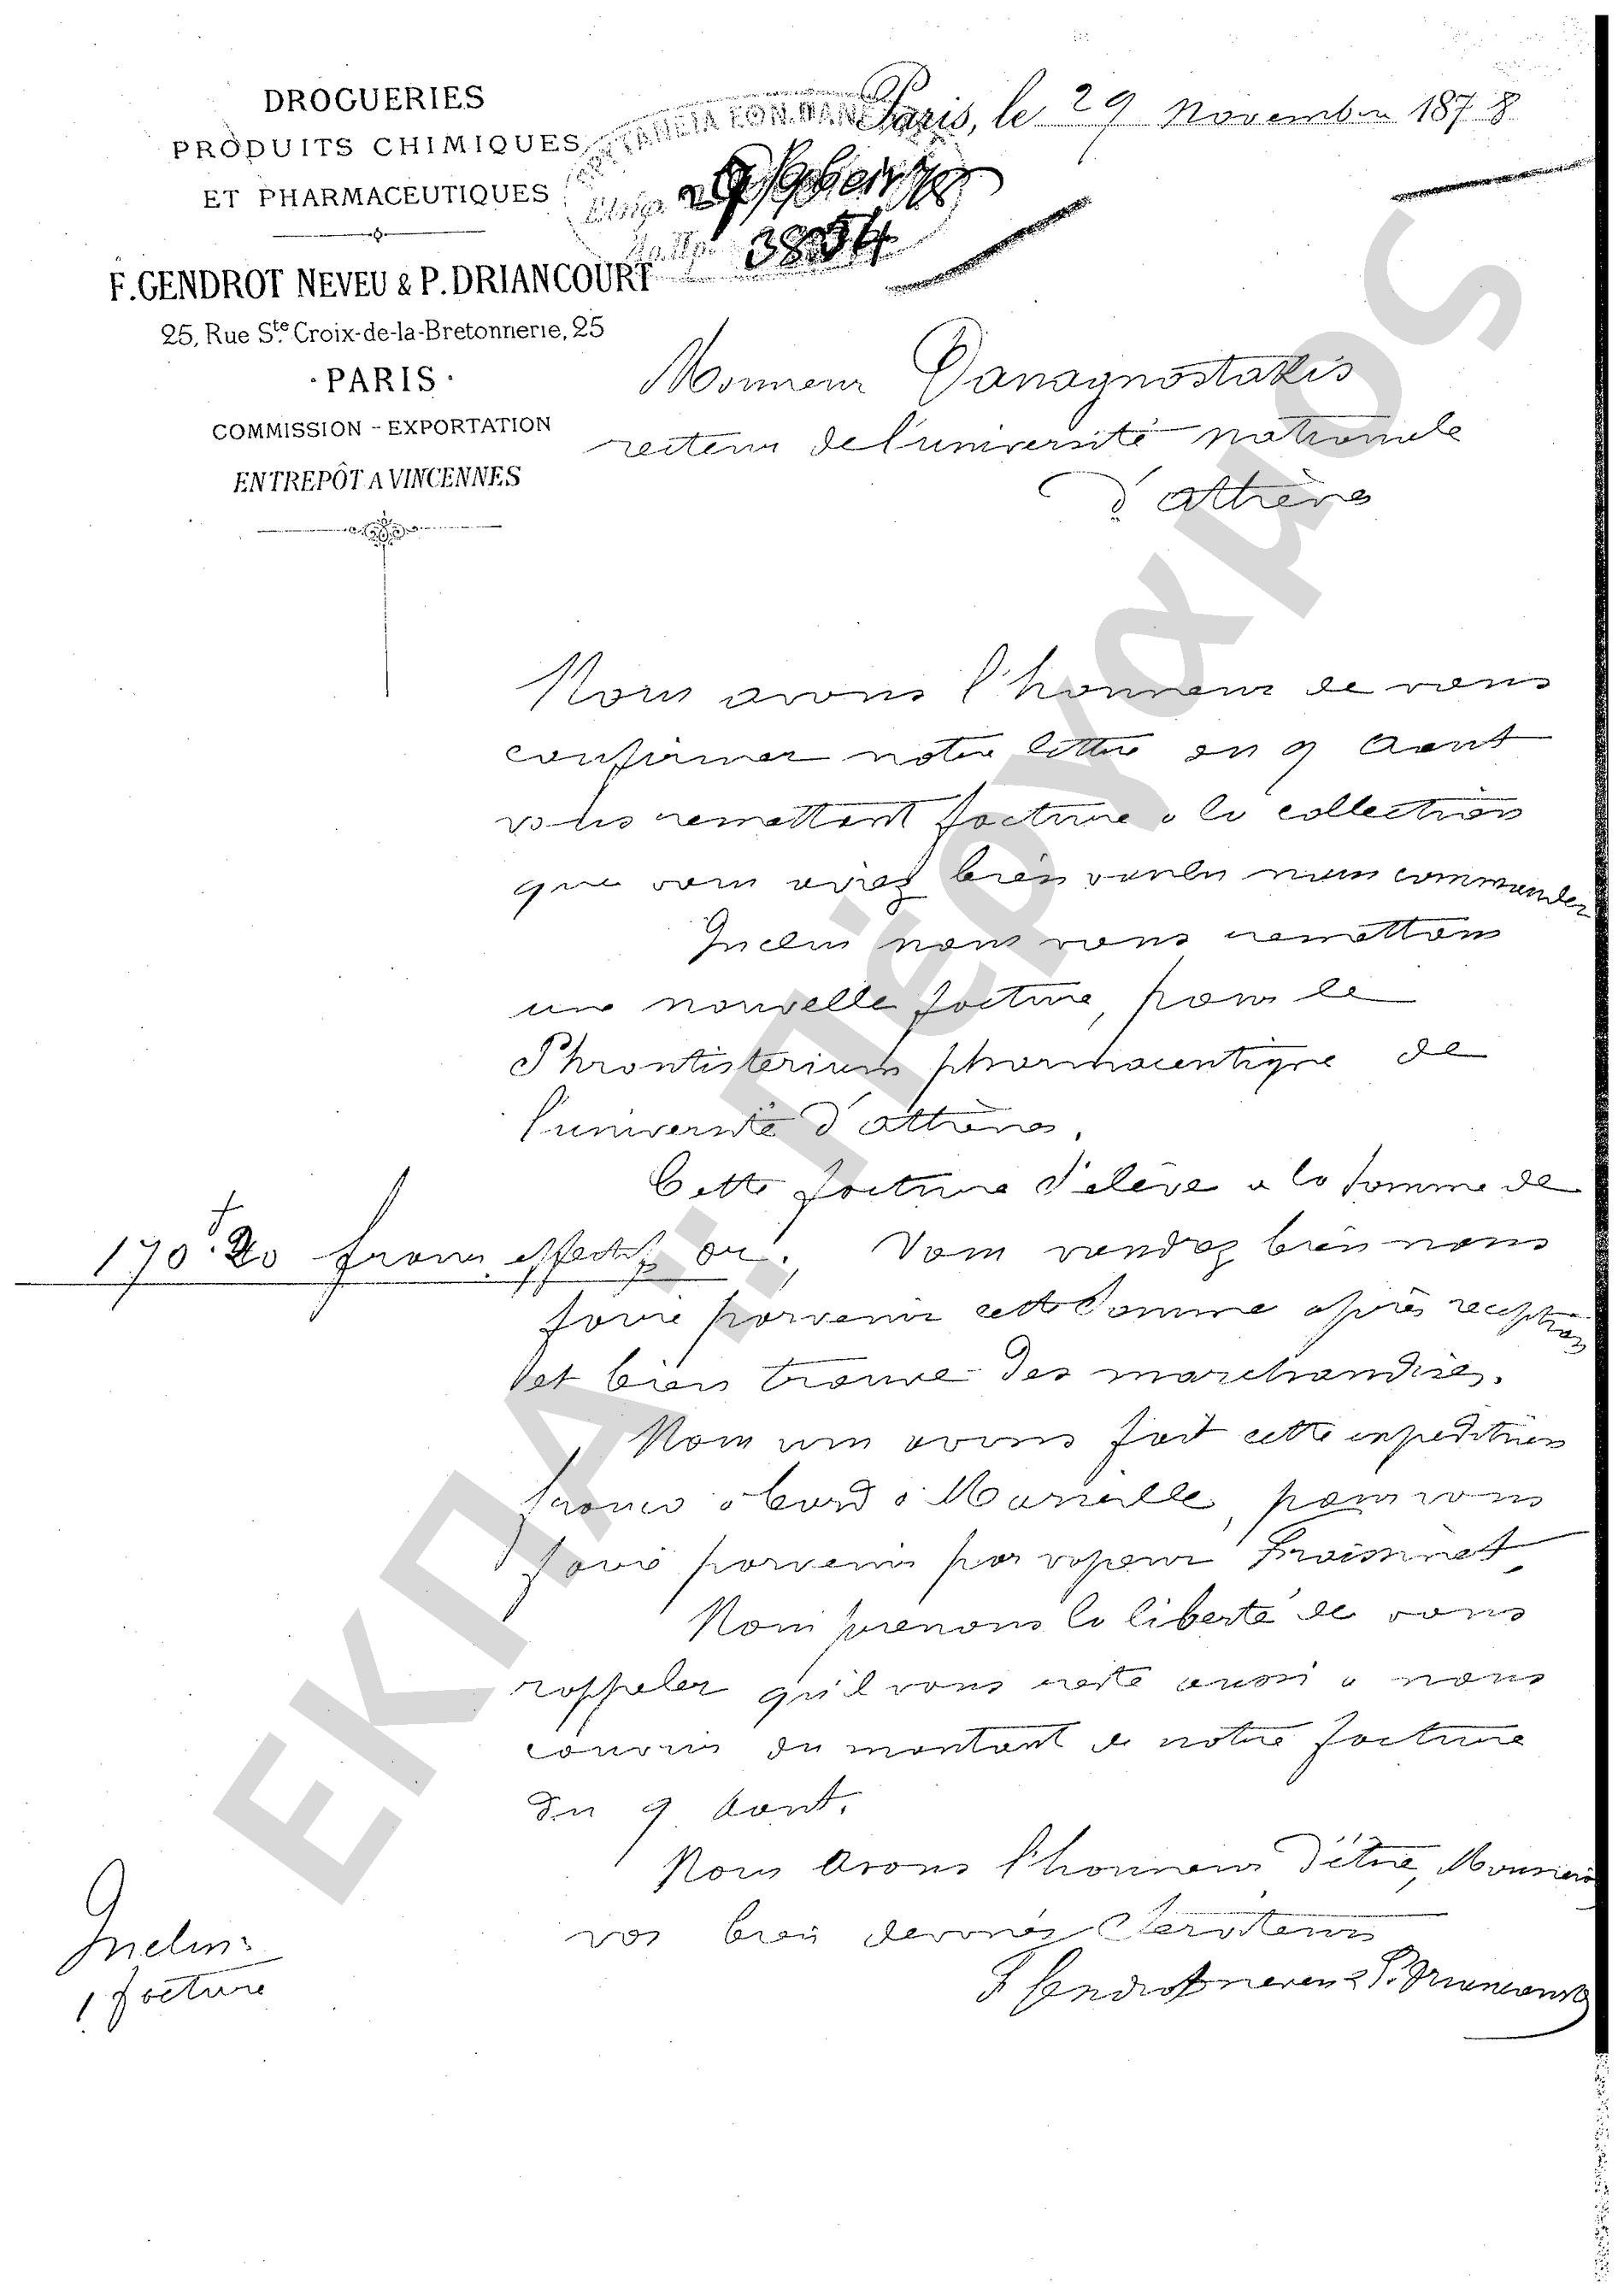 DROGUERIES
PRODUITS CHIMIQUES
ET PHARMACEUTIQUES
F. GENDROT NEVEU & P. DRIANCOURT
25, Rue Ste Croix-de-la-Bretonnerie, 25
· PARIS ·
COMMISSION - EXPORTATION
ENTREPÔT A VINCENNES
Paris, le 29 Novembre 1878
3854
Monsieur Panagnostakis
recteur de l'université nationale
d'athènes
Nous avons l'honneur de vous
confirmer notre lettre du 9 Aout
vous remettant facture a la collection
que vous aviez bien voulu nous commander
Inclus nous vous remettons
une nouvelle facture, pour le
Phrontisterium pharmaceutique de
l'université d'athènes.
Cette facture s'élève a la somme de
170f.20 francs effectifs or. Vous voudrez bien nous
faire parvenir cette somme après reception
et bien trouvé des marchandises.
Nous vous avons fait cette expedition
franco à bord à Marseille, pour vous
faire parvenir par vapeur Fraissinet
Nous prenons la liberté de vous
rappeler qu'il vous reste aussi a nous
couvrir du montant de notre facture
du 9 Aout.
Nous avons l'honneur d'être, Monsieur
vos bien dévoués Serviteurs
F Gendrot neveu & P. Driancourt
Inclus:
1 facture
ΕΚΠΑ:: Πέργαμος